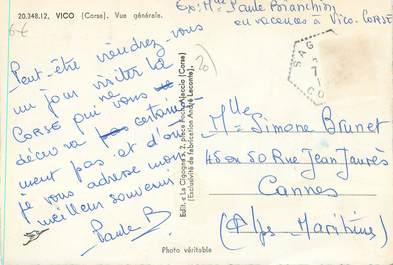 20.348.12. VICO (Corse). Vue générale.
Exp: Mlle Paule Bianchini
en vacances à Vico. CORSE
6€
20
SAG
Peut-être viendrez-vous
un jour visiter la
CORSE qui ne vous
décevra pas certaine-
ment pas et d'où
je vous adresse mon
meilleur souvenir
Paule B
Edit. « La Cigogne », 2, place Foch, Ajaccio (Corse)
(Exclusivité de fabrication André Leconte).
Mlle
Mlle Simone Brunet
48 50 Rue Jean Jaurès
Cannes
(Alpes Maritimes)
Photo véritable